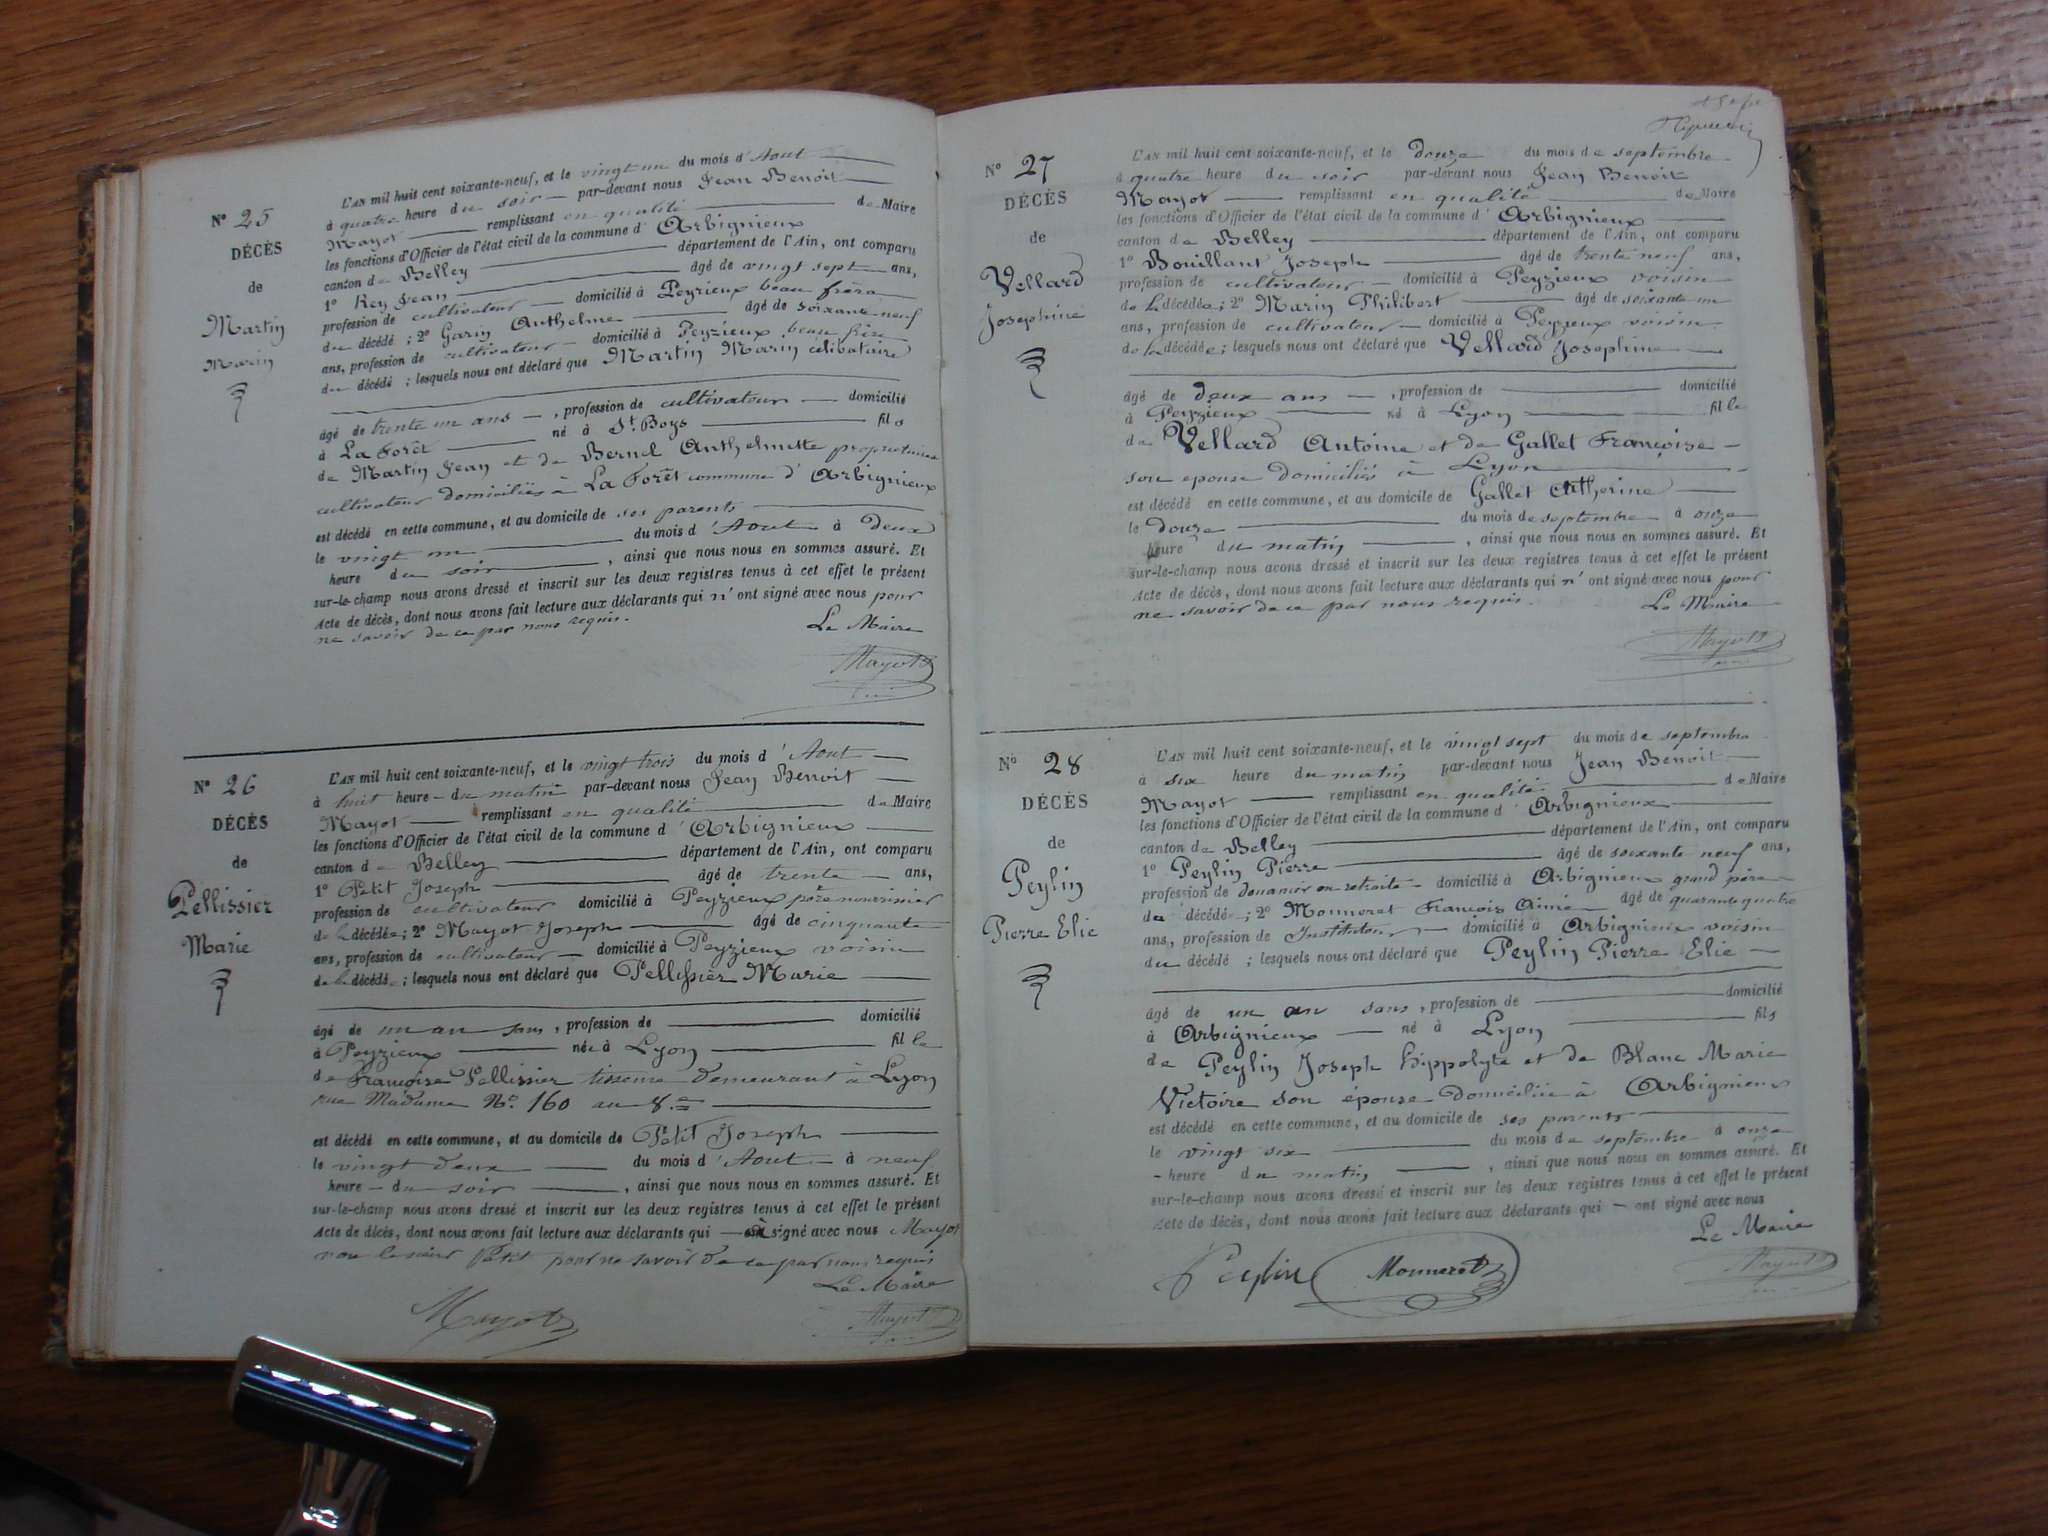 N° 25
DÉCÈS
de
Martin
Marin
L'AN mil huit cent soixante-neuf, et le vingt un du mois d'Aout
à quatre heure du soir par-devant nous Jean Benoit
Mayot remplissant en qualité de Maire
les fonctions d'Officier de l'état civil de la commune d'Arbignieux
canton de Belley département de l'Ain, ont comparu
1° Rey Jean âgé de vingt sept ans,
profession de cultivateur domicilié à Peyzieux beau frère
du décédé ; 2° Garin Anthelme âgé de soixante neuf
ans, profession de cultivateur domicilié à Peyzieux beau frère
du décédé ; lesquels nous ont déclaré que Martin Marin célibataire
âgé de trente un ans, profession de cultivateur domicilié
à La Forêt né à St. Boys fils
de Martin Jean et de Bernel Anthelmette propriétaires
cultivateur domiciliés à La Forêt commune d'Arbignieux
est décédé en cette commune, et au domicile de ses parents
le vingt un du mois d'Aout à deux
heure du soir, ainsi que nous nous en sommes assuré. Et
sur-le-champ nous avons dressé et inscrit sur les deux registres tenus à cet effet le présent
Acte de décès, dont nous avons fait lecture aux déclarants qui n'ont signé avec nous pour
ne savoir de ce par nous requis.
Le Maire
Mayot
N° 26
DÉCÈS
de
Pellissier
Marie
L'AN mil huit cent soixante-neuf, et le vingt trois du mois d'Aout
à huit heure du matin par-devant nous Jean Benoit
Mayot remplissant en qualité de Maire
les fonctions d'Officier de l'état civil de la commune d'Arbignieux
canton de Belley département de l'Ain, ont comparu
1° Petit Joseph âgé de trente ans,
profession de cultivateur domicilié à Peyzieux père nourricier
de la décédée ; 2° Mayot Joseph âgé de cinquante
ans, profession de cultivateur domicilié à Peyzieux voisin
de la décédée ; lesquels nous ont déclaré que Pellissier Marie
âgé de un an sans, profession de domicilié
à Peyzieux née à Lyon fille
de Françoise Pellissier tisseuse demeurant à Lyon
rue Madame N° 160 au 8e
est décédé en cette commune, et au domicile de Petit Joseph
le vingt deux du mois d'Aout à neuf
heure du soir, ainsi que nous nous en sommes assuré. Et
sur-le-champ nous avons dressé et inscrit sur les deux registres tenus à cet effet le présent
Acte de décès, dont nous avons fait lecture aux déclarants qui a signé avec nous Mayot
non le sieur Petit pour ne savoir de ce par nous requis
Le Maire
Mayot
Mayot
N° 27
DÉCÈS
de
Vellard
Josephine
L'AN mil huit cent soixante-neuf, et le douze du mois de septembre
à quatre heure du soir par-devant nous Jean Benoit
Mayot remplissant en qualité de Maire
les fonctions d'Officier de l'état civil de la commune d'Arbignieux
canton de Belley département de l'Ain, ont comparu
1° Bouillant Joseph âgé de trente neuf ans,
profession de cultivateur domicilié à Peyzieux voisin
de la décédée ; 2° Marin Philibert âgé de soixante un
ans, profession de cultivateur domicilié à Peyzieux voisin
de la décédée ; lesquels nous ont déclaré que Vellard Josephine
âgé de deux ans, profession de domicilié
à Peyzieux né à Lyon fille
de Vellard Antoine et de Gallet Françoise
son épouse domiciliés à Lyon
est décédé en cette commune, et au domicile de Gallet Catherine
le douze du mois de septembre à onze
heure du matin, ainsi que nous nous en sommes assuré. Et
sur-le-champ nous avons dressé et inscrit sur les deux registres tenus à cet effet le présent
Acte de décès, dont nous avons fait lecture aux déclarants qui n'ont signé avec nous pour
ne savoir de ce par nous requis.
Le Maire
Mayot
N° 28
DÉCÈS
de
Peylin
Pierre Elie
L'AN mil huit cent soixante-neuf, et le vingt sept du mois de septembre
à six heure du matin par-devant nous Jean Benoit
Mayot remplissant en qualité de Maire
les fonctions d'Officier de l'état civil de la commune d'Arbignieux
canton de Belley département de l'Ain, ont comparu
1° Peylin Pierre âgé de soixante neuf ans,
profession de douanier en retraite domicilié à Arbignieux grand père
du décédé ; 2° Monneret François Aimé âgé de quarante quatre
ans, profession de Instituteur domicilié à Arbignieux voisin
du décédé ; lesquels nous ont déclaré que Peylin Pierre Elie
âgé de un an sans, profession de domicilié
à Arbignieux né à Lyon fils
de Peylin Joseph hippolyte et de Blanc Marie
Victoire son épouse domiciliée à Arbignieux
est décédé en cette commune, et au domicile de ses parents
le vingt six du mois de septembre à onze
heure du matin, ainsi que nous nous en sommes assuré. Et
sur-le-champ nous avons dressé et inscrit sur les deux registres tenus à cet effet le présent
Acte de décès, dont nous avons fait lecture aux déclarants qui ont signé avec nous
Le Maire
Peylin Monneret Mayot